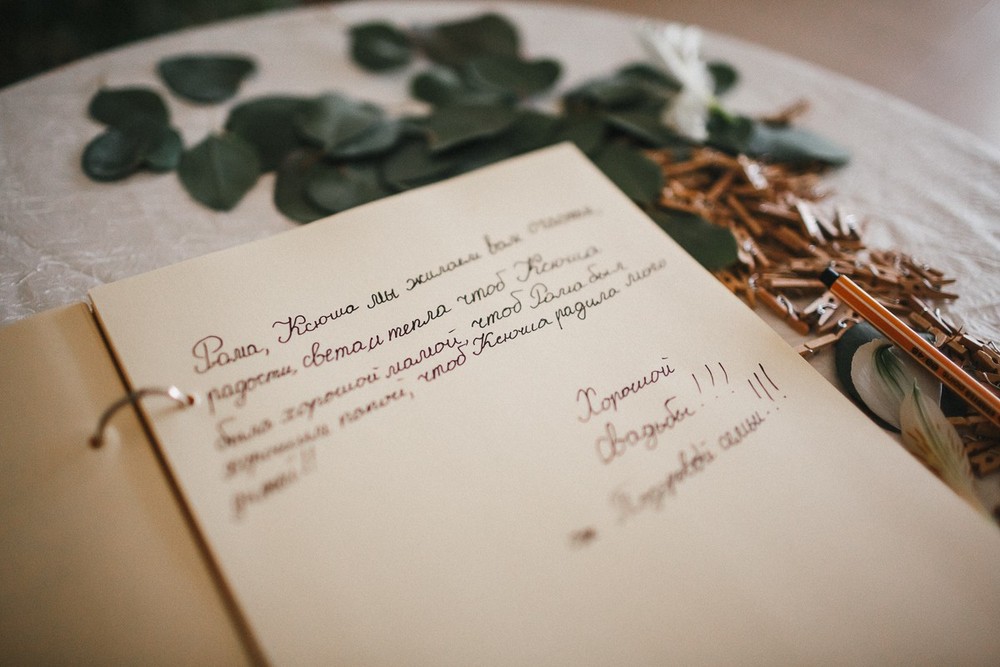 Рама, Ксюша мы жилаем вам счастья,
радости, света и тепла чтоб Ксюша
была хорошей мамой, чтоб Рама был
хорошим папой, чтоб Ксюша радила много
детей!!!
Хорошой
Свадьбы!!!
семьи..!!!